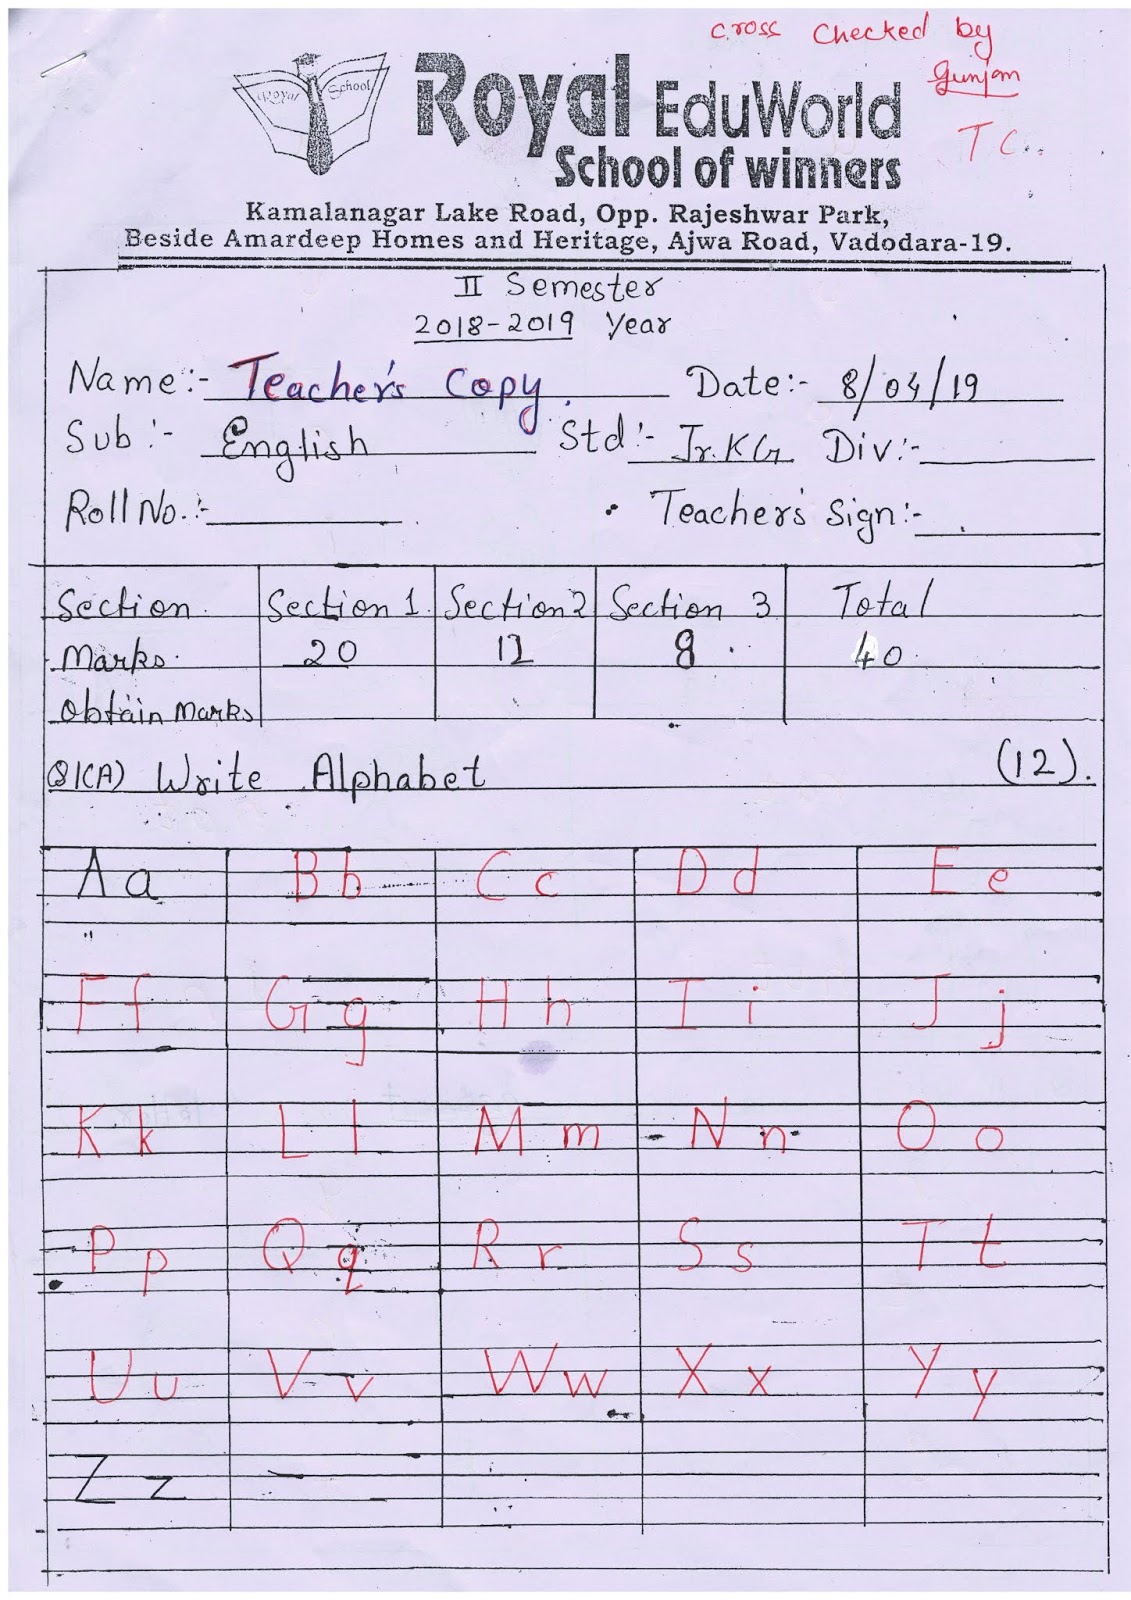 cross checked by
Gunjan
T C..
Royal School
Royal EduWorld
School of winners
Kamalanagar Lake Road, Opp. Rajeshwar Park,
Beside Amardeep Homes and Heritage, Ajwa Road, Vadodara-19.
II Semester
2018-2019 Year
Name:- Teacher's Copy. Date:- 8/04/19
Sub:- English Std:- Jr.KG Div:-
Roll No.:- Teacher's Sign:-
Section Section 1 Section 2 Section 3 Total
Marks 20 12 8 40
Obtain Marks
Q1(A) Write Alphabet (12).
A a B b C c D d E e
F f G g H h I i J j
K k L l M m N n O o
P p Q q R r S s T t
U u V v W w X x Y y
Z z